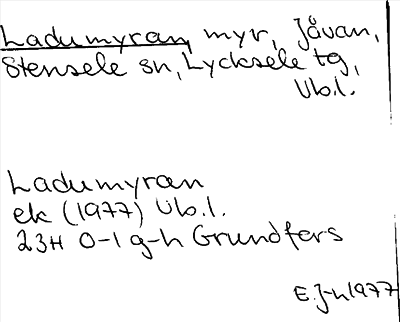 Ladumyran, myr, Jåvan,
Stensele sn, Lycksele tg,
Vb.l.
Ladumyran
ek (1977) Vb.l.
23H 0-1 g-h Grundfors
E.J-n 1977